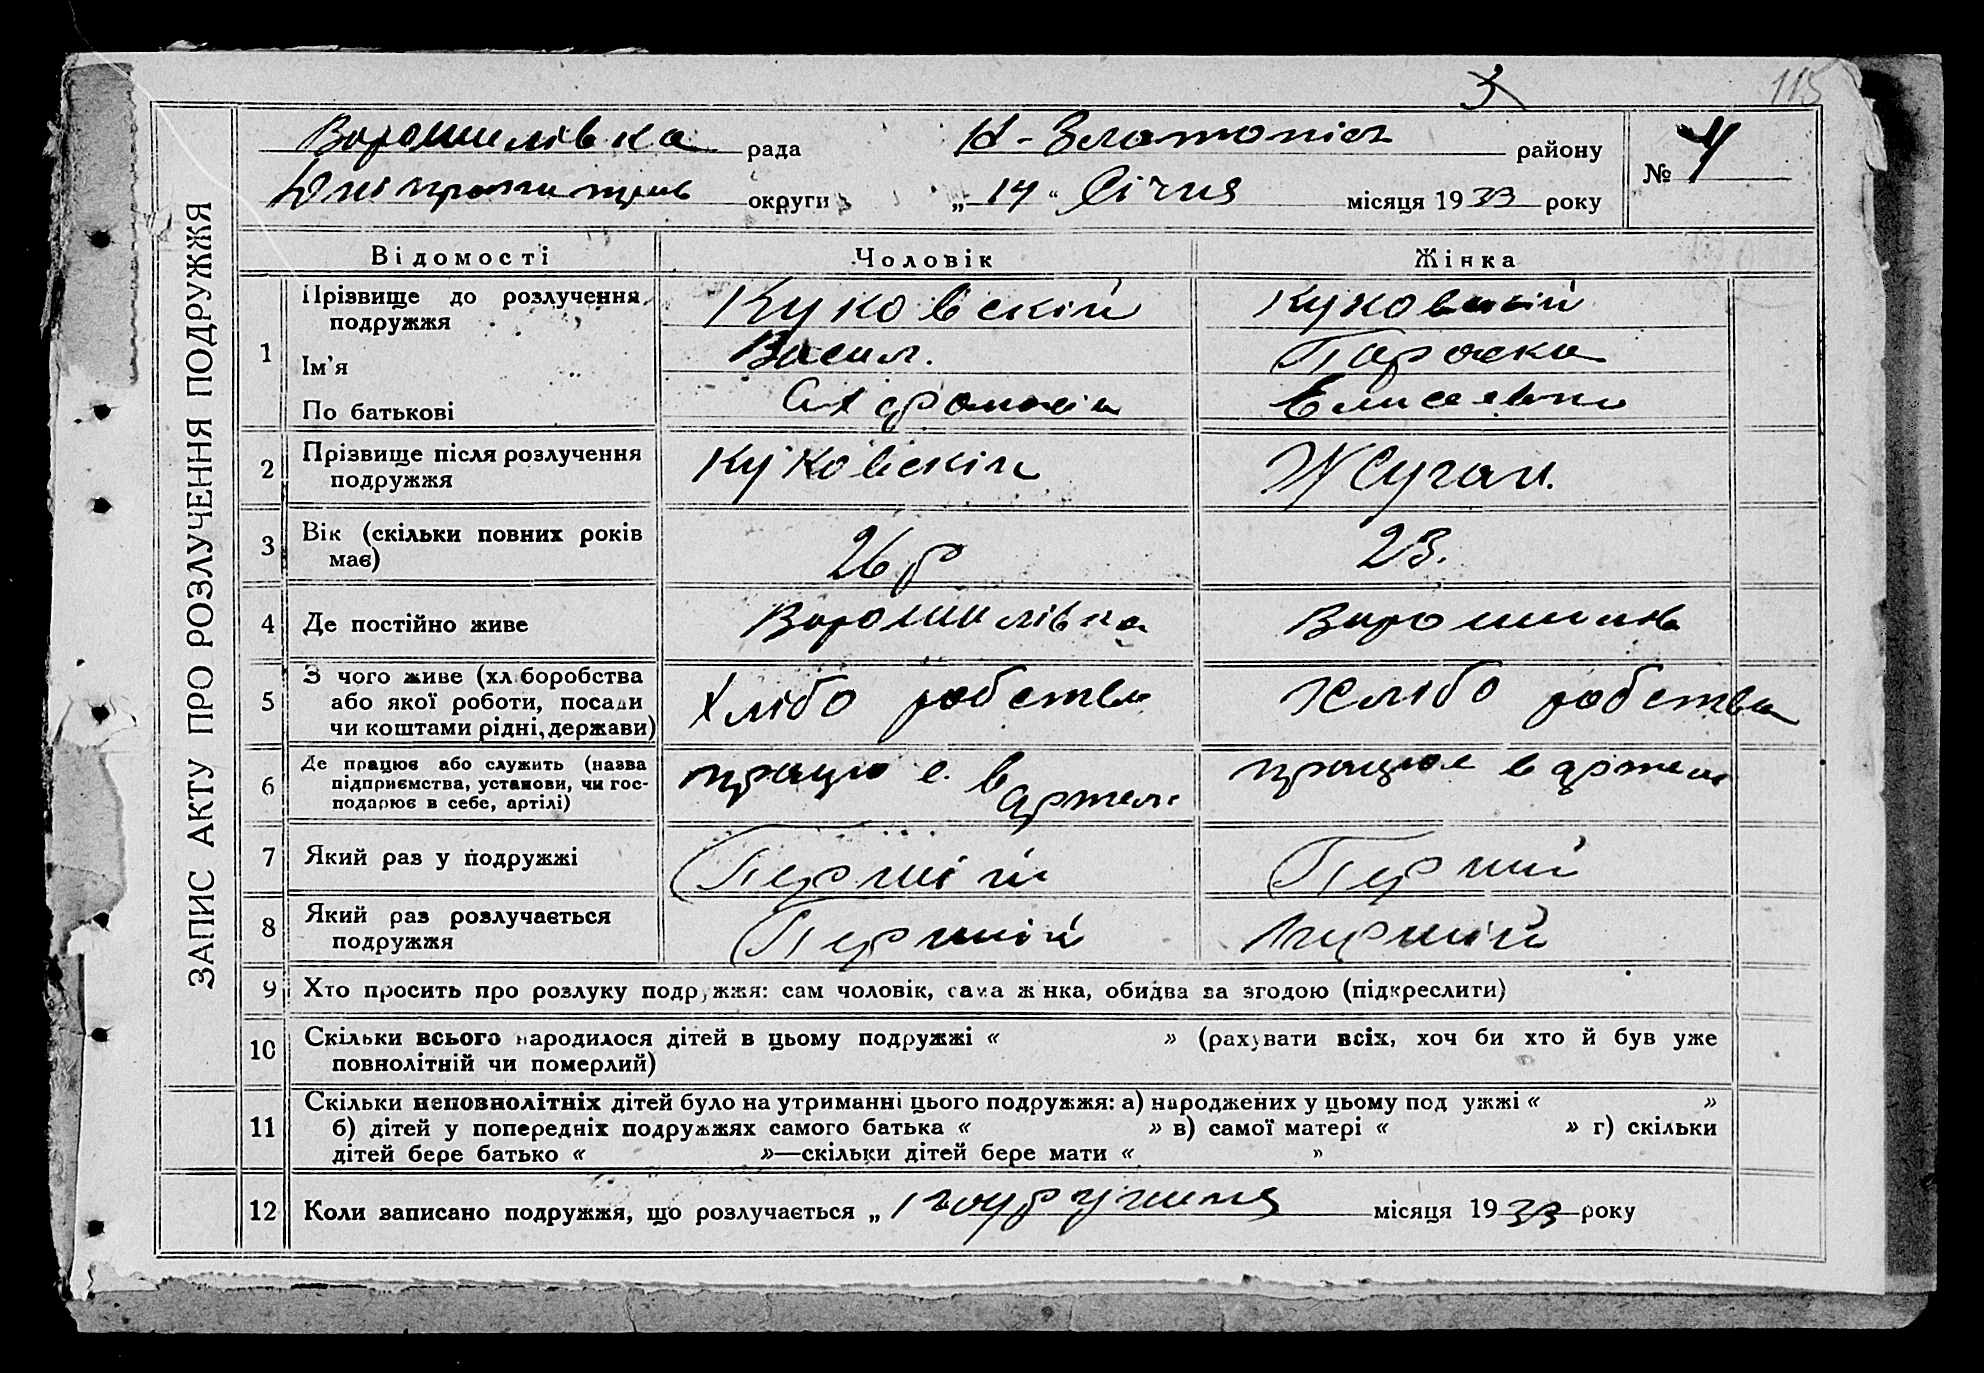 З
115
Ворошилівка рада Н-Златопіль району
№ 4
Дніпропитрів округи „ 14 " Січня місяця 1933 року
ЗАПИС АКТУ ПРО РОЗЛУЧЕННЯ ПОДРУЖЖЯ
Відомості Чоловік Жінка
1 Прізвище до розлучення подружжя Куковскій Куковский
Ім'я Васил. Параска
По батькові Елисеевна
2 Прізвище після розлучення подружжя Куковскій Жаган.
3 Вік (скільки повних років має) 26 р 23.
4 Де постійно живе Ворошилівка Ворошилів
5 З чого живе (хліборобства або якої роботи, посади чи коштами рідні, держави) Хлібо робства Хлібо робства
6 Де працює або служить (назва підприємства, установи, чи господарює в себе, артілі) працює в артелі працює в артелі
7 Який раз у подружжі Першій Перший
8 Який раз розлучається подружжя Першій Першій
9 Хто просить про розлуку подружжя: сам чоловік, сама жінка, обидва за згодою (підкреслити)
10 Скільки всього народилося дітей в цьому подружжі « » (рахувати всіх, хоч би хто й був уже
повнолітній чи померлий)
11 Скільки неповнолітніх дітей було на утриманні цього подружжя: а) народжених у цьому подружжі « »
б) дітей у попередніх подружжях самого батька « » в) самої матері « » г) скільки
дітей бере батько « »—скільки дітей бере мати « »
12 Коли записано подружжя, що розлучається „ місяця 1933 року